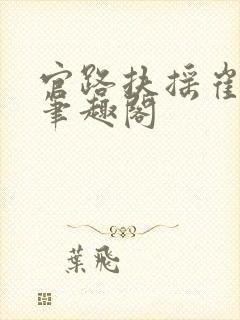 官路扶摇崔
笔趣阁
葉飛